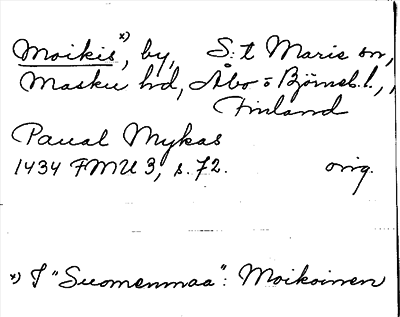 Moikis *), by, S:t Marie sn,
Masku hd, Åbo o Björneb. l.,
Finland
Paual Mykas
1434 FMU 3, s. 72. orig.
*) I "Suomenmaa": Moikoinen